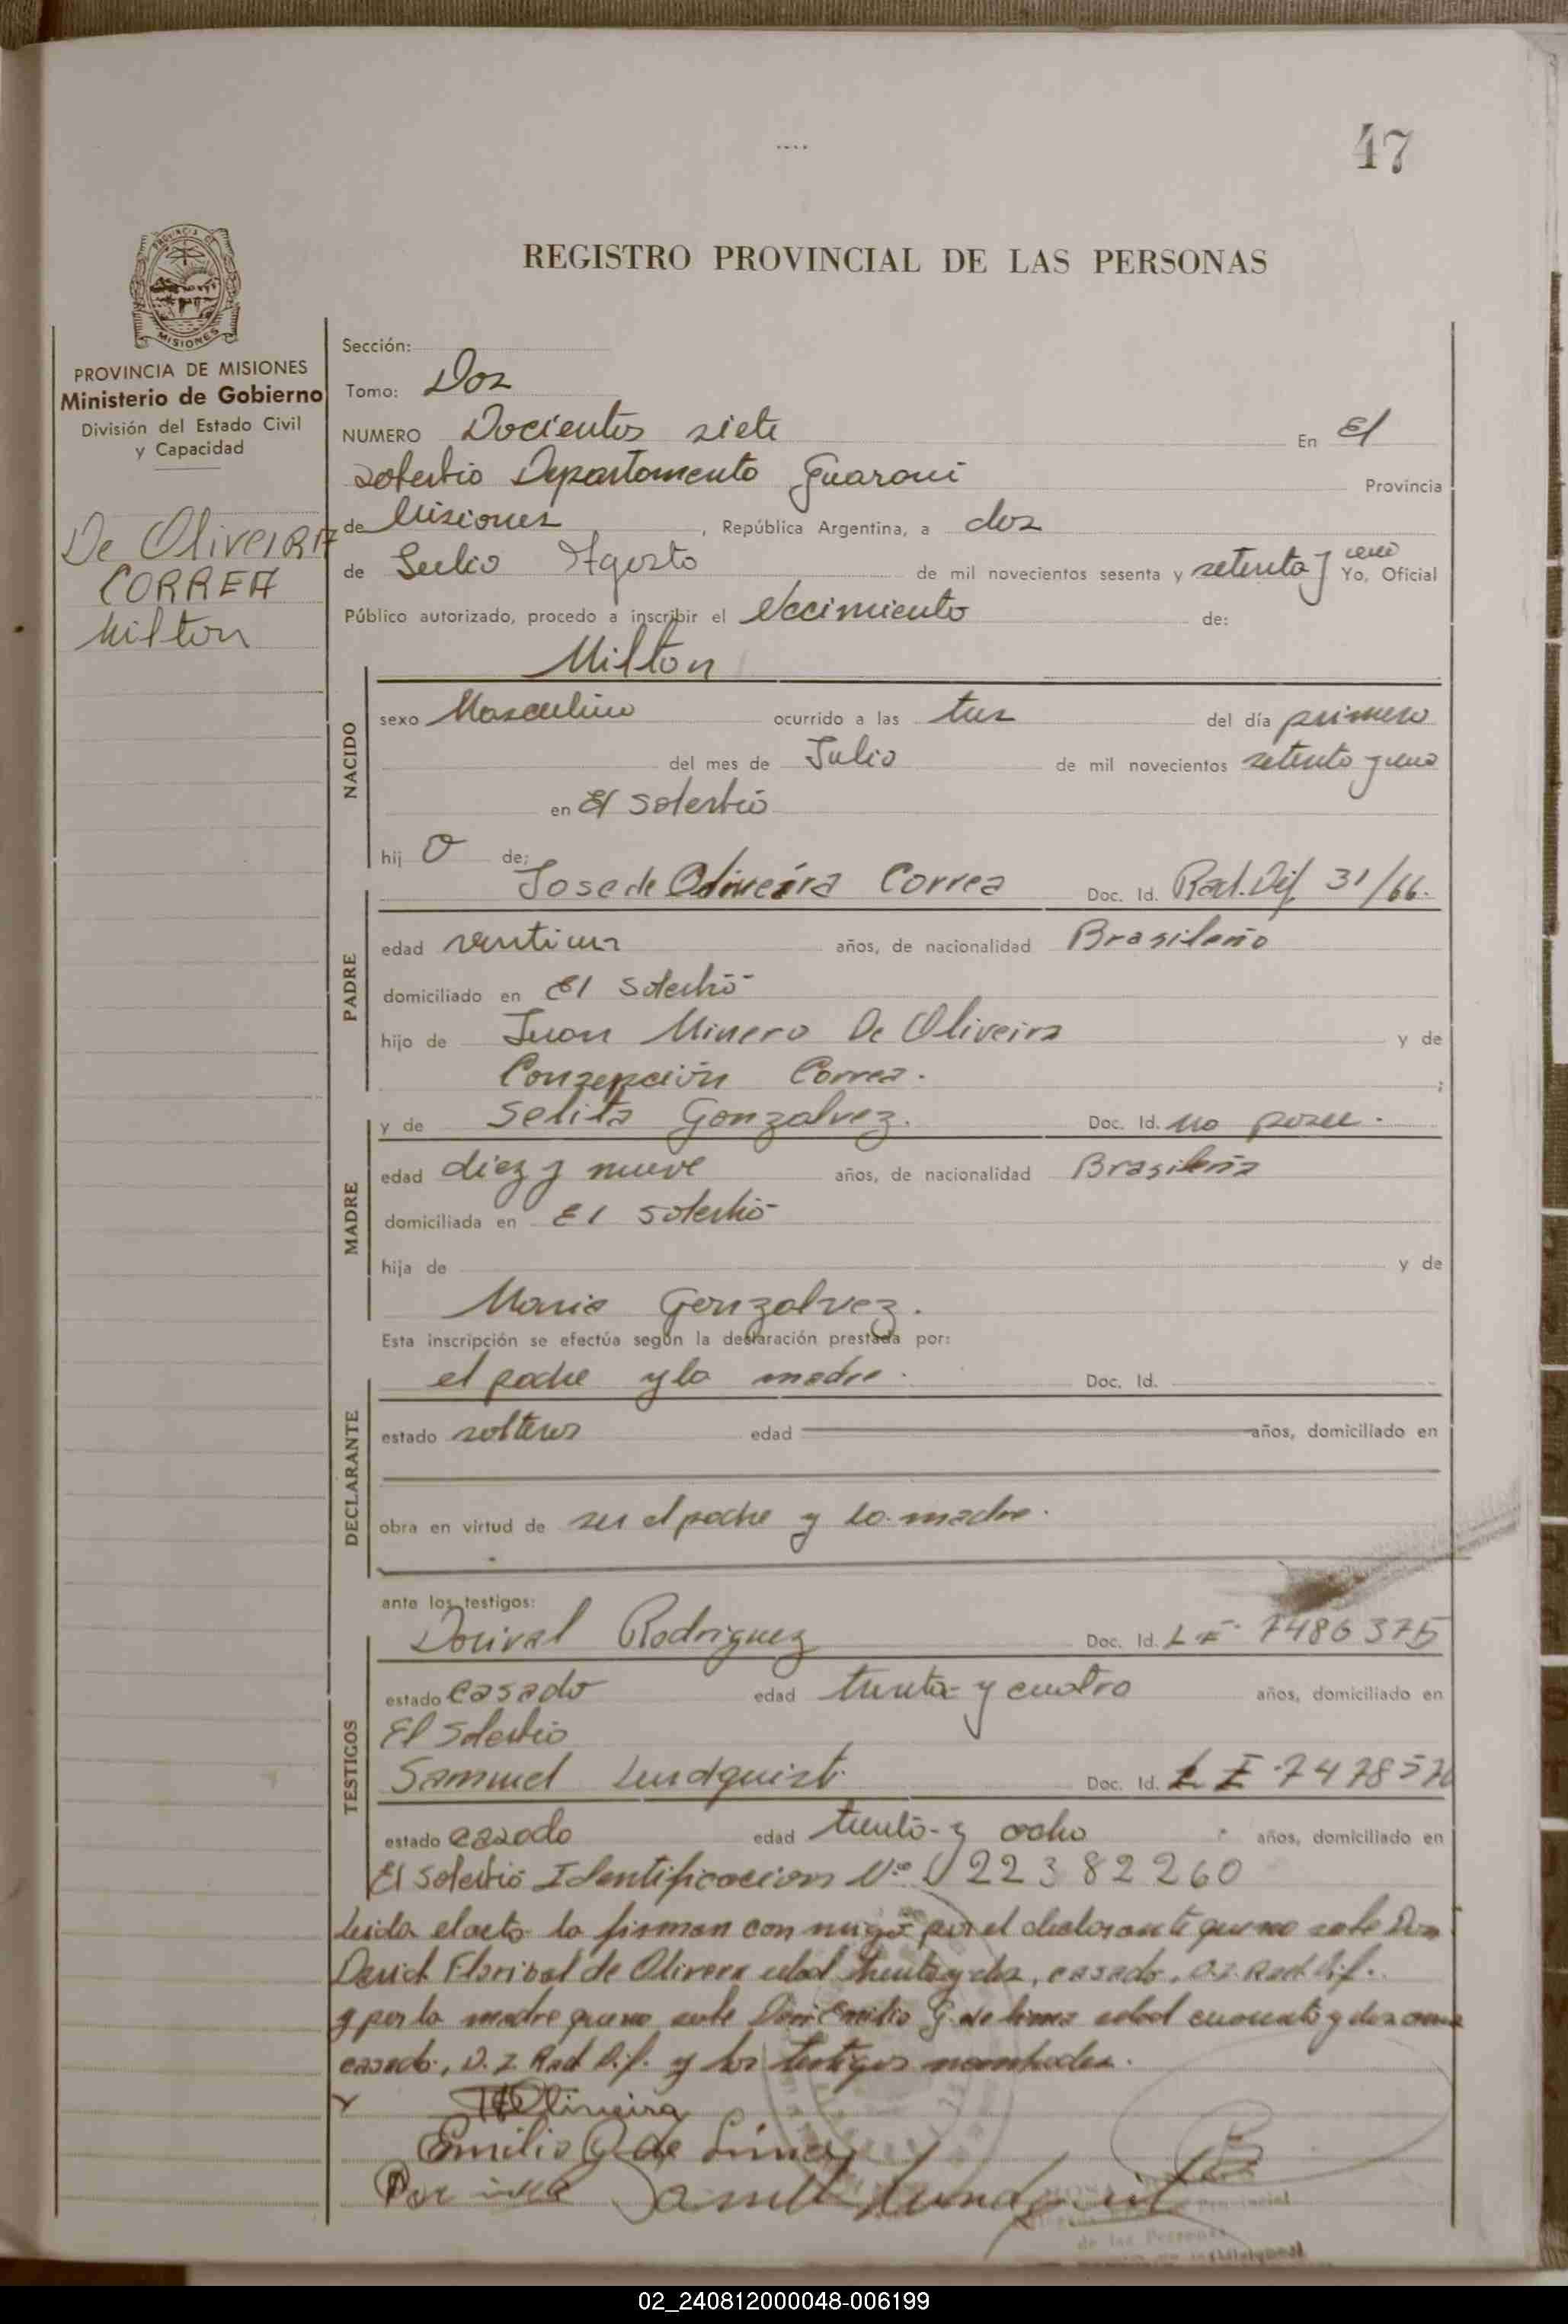 47
REGISTRO PROVINCIAL DE LAS PERSONAS
PROVINCIA DE MISIONES
Ministerio de Gobierno
División del Estado Civil
y Capacidad
De Oliveira
CORREA
Milton
Sección:
Tomo: Dos
NUMERO Docientos siete En El
Soberbio Departamento Guarani Provincia
de Misiones, República Argentina, a dos
de Julio Agosto de mil novecientos sesenta y setenta y uno Yo, Oficial
Público autorizado, procedo a inscribir el Nacimiento de:
Milton
NACIDO
sexo Masculino ocurrido a las tres del día primero
del mes de Julio de mil novecientos setenta y uno
en El Soberbio
hij o de:
Jose de Oliveira Correa Doc. Id. Rad. Dif 31/66.
PADRE
edad años, de nacionalidad Brasileño
domiciliado en El Soberbio
hijo de Juan Minero De Oliveira y de
Conzepción Correa.
;
y de Selita Gonzalvez. Doc. Id. no posee.
MADRE
edad diez y nueve años, de nacionalidad Brasileña
domiciliada en El Soberbio
hija de y de
Maria Gonzalvez.
Esta inscripción se efectúa según la declaración prestada por:
el padre y la madre. Doc. Id.
DECLARANTE
estado solteros edad años, domiciliado en
obra en virtud de ser el padre y la madre.
ante los testigos:
TESTIGOS
Dorival Rodriguez Doc. Id. L E 7486375
estado casado edad trenta y cuatro años, domiciliado en
El Soberbio
Samuel Lundquist. Doc. Id. L E 747857
estado casado edad trenta y ocho años, domiciliado en
El Soberbio Identificacion Nº 22382260
Leida el acta la firman con migo por el declarante que no sabe Don
David Floribal de Olivera edad trenta y dos, casado, D.I. Rad Dif.
y por la madre que no sabe Don Emilio G. de Lima edad cuarenta y dos
casado, D.I. Rad Dif. y los testigos nombrados.
Oliveira
Emilio G de Lima
Samuel Lundquist
de las Personas
02_240812000048-006199